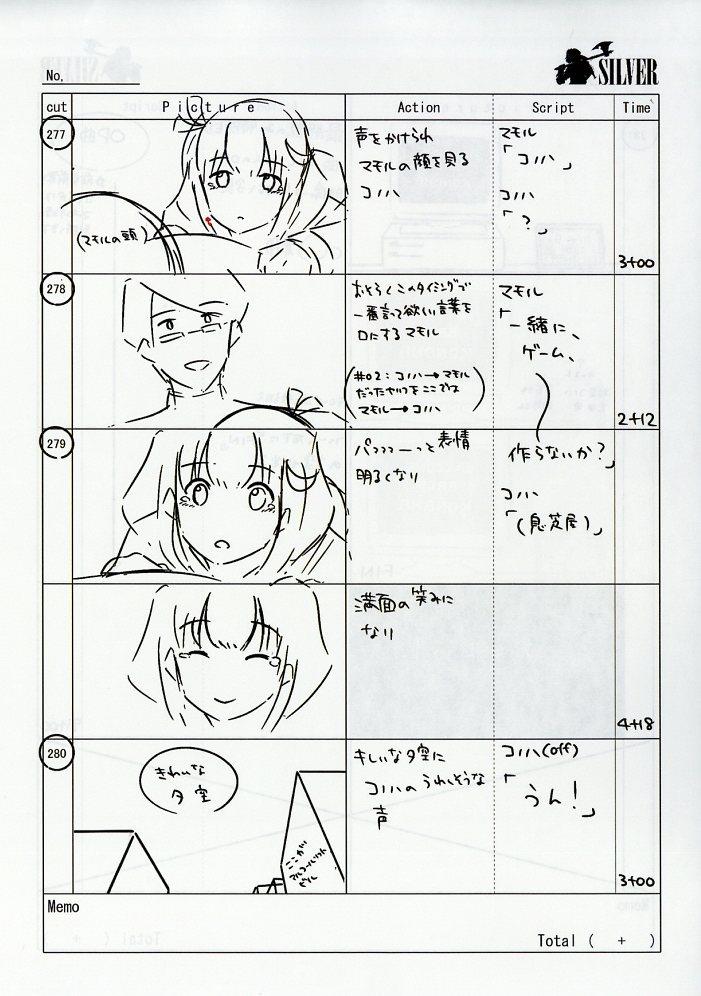 No.
SILVER
cut
Picture
Action
Script
Time
277
(マモルの頭)
声をかけられ
マモルの顔を見る
コノハ
マモル
「コノハ」
コノハ
「?」
3+00
278
おそらくこのタイミングで
一番言って欲しい言葉を
口にするマモル
(#02:コノハ→マモル
だったセリフをここでは
マモル→コノハ)
マモル
「一緒に、
ゲーム、
2+12
279
パァァァーっと表情
明るくなり
作らないか?」
コノハ
「(息芝居)」
満面の笑みに
なり
4+18
280
きれいな
夕空
ここが
キレイな夕空に
コノハのうれしそうな
声
コノハ(off)
「うん!」
3+00
Memo
Total ( + )